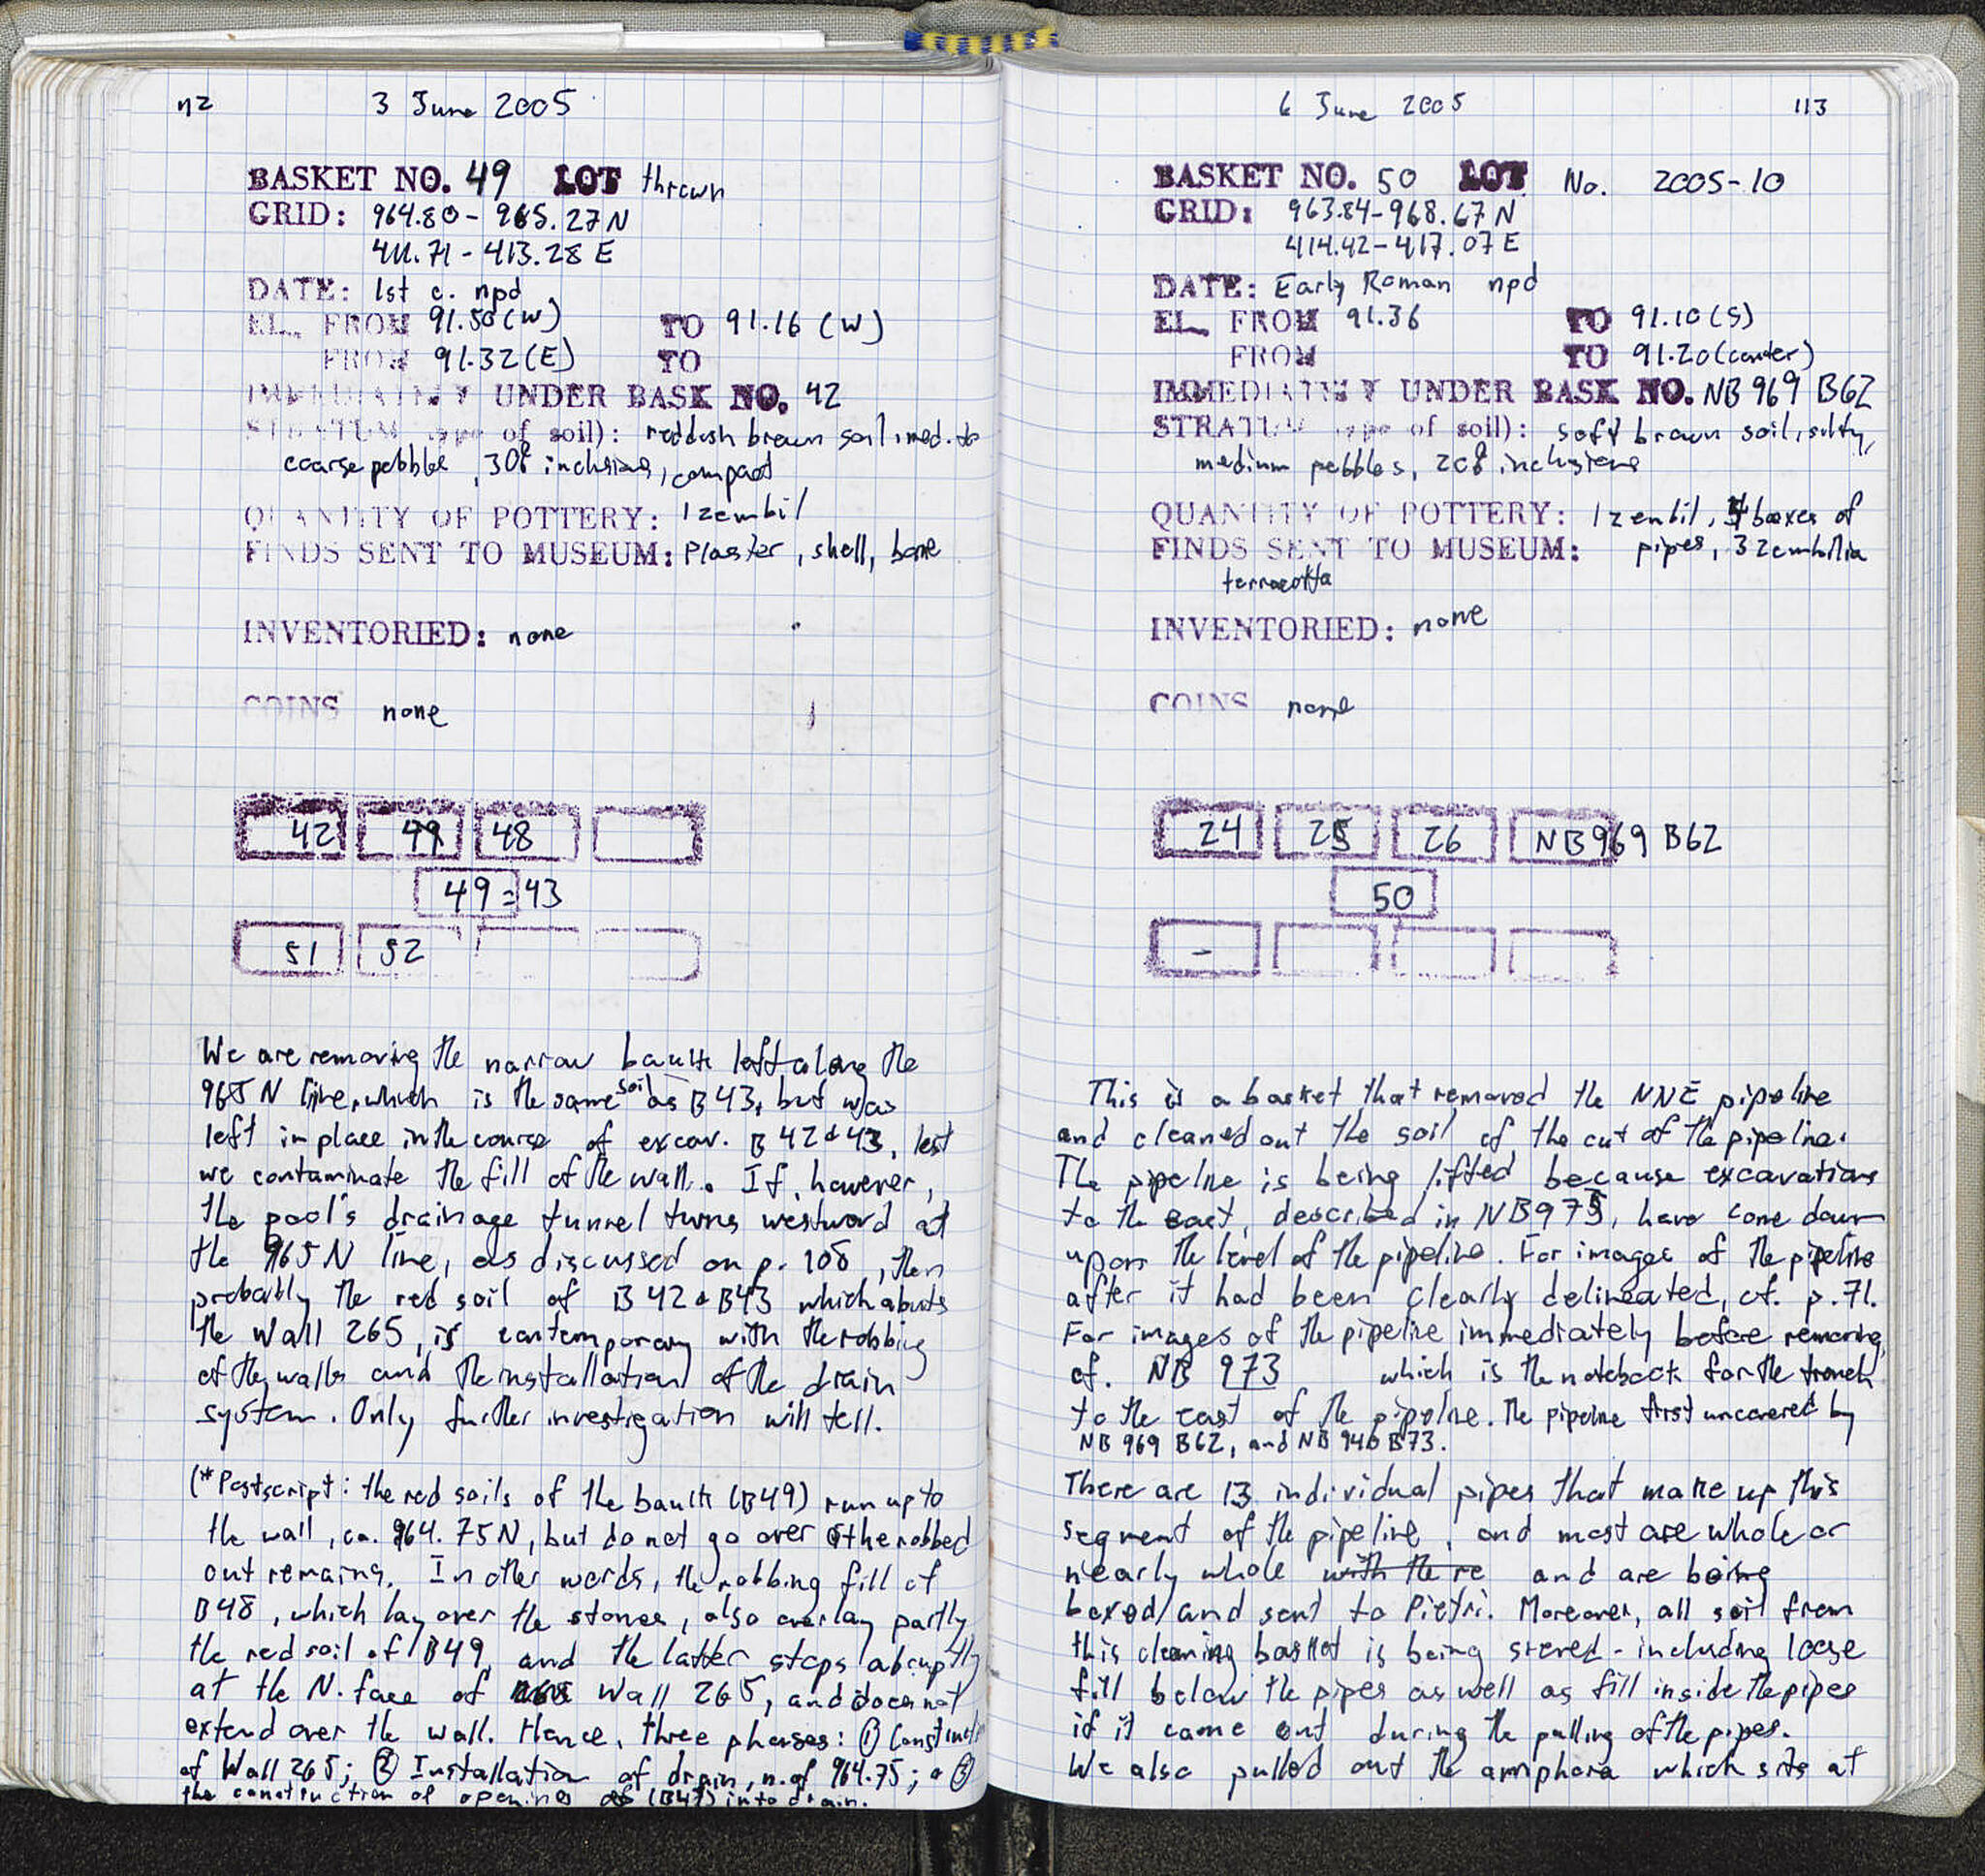 112 3 June 2005
BASKET NO. 49 LOT thrown
GRID: 964.80 - 965.27 N
411.71 - 413.28 E
DATE: 1st c. npd
EL. FROM 91.50 (W) TO 91.16 (W)
FROM 91.32 (E) TO
IMMEDIATELY UNDER BASK NO. 42
STRATUM (type of soil): reddish brown soil, med. to
coarse pebble, 30% inclusions, compact
QUANTITY OF POTTERY: 1 zembil
FINDS SENT TO MUSEUM: plaster, shell, bone
INVENTORIED: none
COINS none
42 48
49 = 43
51 52
We are removing the narrow baulk left along the
965 N line, which is the same soil as B43, but was
left in place in the course of excav. B 42 & 43, lest
we contaminate the fill of the wall. If, however,
the pool's drainage tunnel turns westward at
the 965 N line, as discussed on p. 108, then
probably the red soil of B 42 & B43 which abuts
the Wall 265, is contemporary with the robbing
of the walls and the installation of the drain
system. Only further investigation will tell.
(*Postscript: the red soils of the baulk (B49) run up to
the wall, ca. 964.75 N, but do not go over the robbed
out remains. In other words, the robbing fill of
B48, which lay over the stones, also overlay partly
the red soil of B49, and the latter stops abruptly
at the N. face of Wall 265, and does not
extend over the wall. Hence, three phases: ① Construction
of Wall 265; ② Installation of drain, n. of 964.75; & ③
the construction of opening (B47) into drain.
6 June 2005 113
BASKET NO. 50 LOT No. 2005-10
GRID: 963.84 - 968.67 N
414.42 - 417.07 E
DATE: Early Roman npd
EL. FROM 91.36 TO 91.10 (S)
FROM TO 91.20 (center)
IMMEDIATELY UNDER BASK NO. NB 969 B62
STRATUM (type of soil): soft brown soil, silty,
medium pebbles, 20% inclusions
QUANTITY OF POTTERY: 1 zembil, 4 boxes of
FINDS SENT TO MUSEUM: pipes, 3 zembilia
terracotta
INVENTORIED: none
COINS none
24 25 26 NB 969 B62
50
-
This is a basket that removed the NNE pipeline
and cleaned out the soil of the cut of the pipeline.
The pipeline is being lifted because excavations
to the east, described in NB 973, have come down
upon the level of the pipeline. For images of the pipeline
after it had been clearly delineated, cf. p. 71.
For images of the pipeline immediately before removing,
cf. NB 973 which is the notebook for the trench
to the east of the pipeline. The pipeline first uncovered by
NB 969 B62, and NB 946 B73.
There are 13 individual pipes that make up this
segment of the pipeline, and most are whole or
nearly whole with the re and are being
boxed and sent to Pietri. Moreover, all soil from
this cleaning basket is being sieved - including loose
fill below the pipes as well as fill inside the pipes
if it came out during the pulling of the pipes.
We also pulled out the amphora which sits at